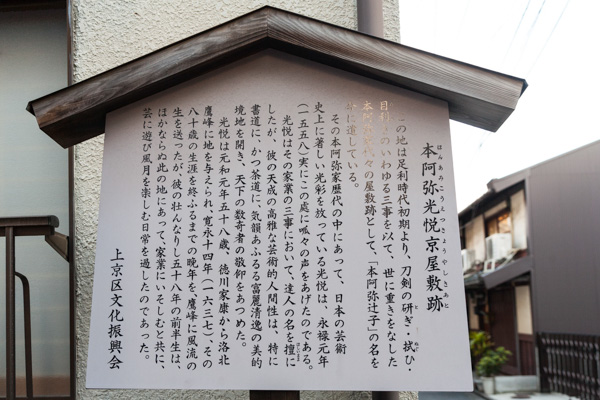 本阿弥光悦京屋敷跡
ほんあみこうえつきょうやしきあと
この地は足利時代初期より、刀剣の研ぎ・拭ひ・
目利きのいわゆる三事を以て、世に重きをなした
本阿弥家代々の屋敷跡として、「本阿弥辻子」の名を
今に遺している。
その本阿弥家歴代の中にあって、日本の芸術
史上に著しい光彩を放っている光悦は、永禄元年
(一五五八)実にこの処に呱々の声をあげたのである。
光悦はその家業の三事において、達人の名を擅に
したが、彼の天成の高雅な芸術的人間性は、特に
書道に、かつ茶道に、気韻あふるる富麗清逸の美的
境地を開き、天下の数奇者の敬仰をあつめた。
光悦は元和元年五十八歳、徳川家康から洛北
鷹峰に地を与えられ、寛永十四年(一六三七)、その
八十歳の生涯を終ふるまでの晩年を鷹峰に風流の
生を送ったが、彼の壮んなりし五十八年の前半生は、
ほかならぬ此の地にあって、家業にいそしむと共に、
芸に遊び風月を楽しむ日常を過したのであった。
上京区文化振興会